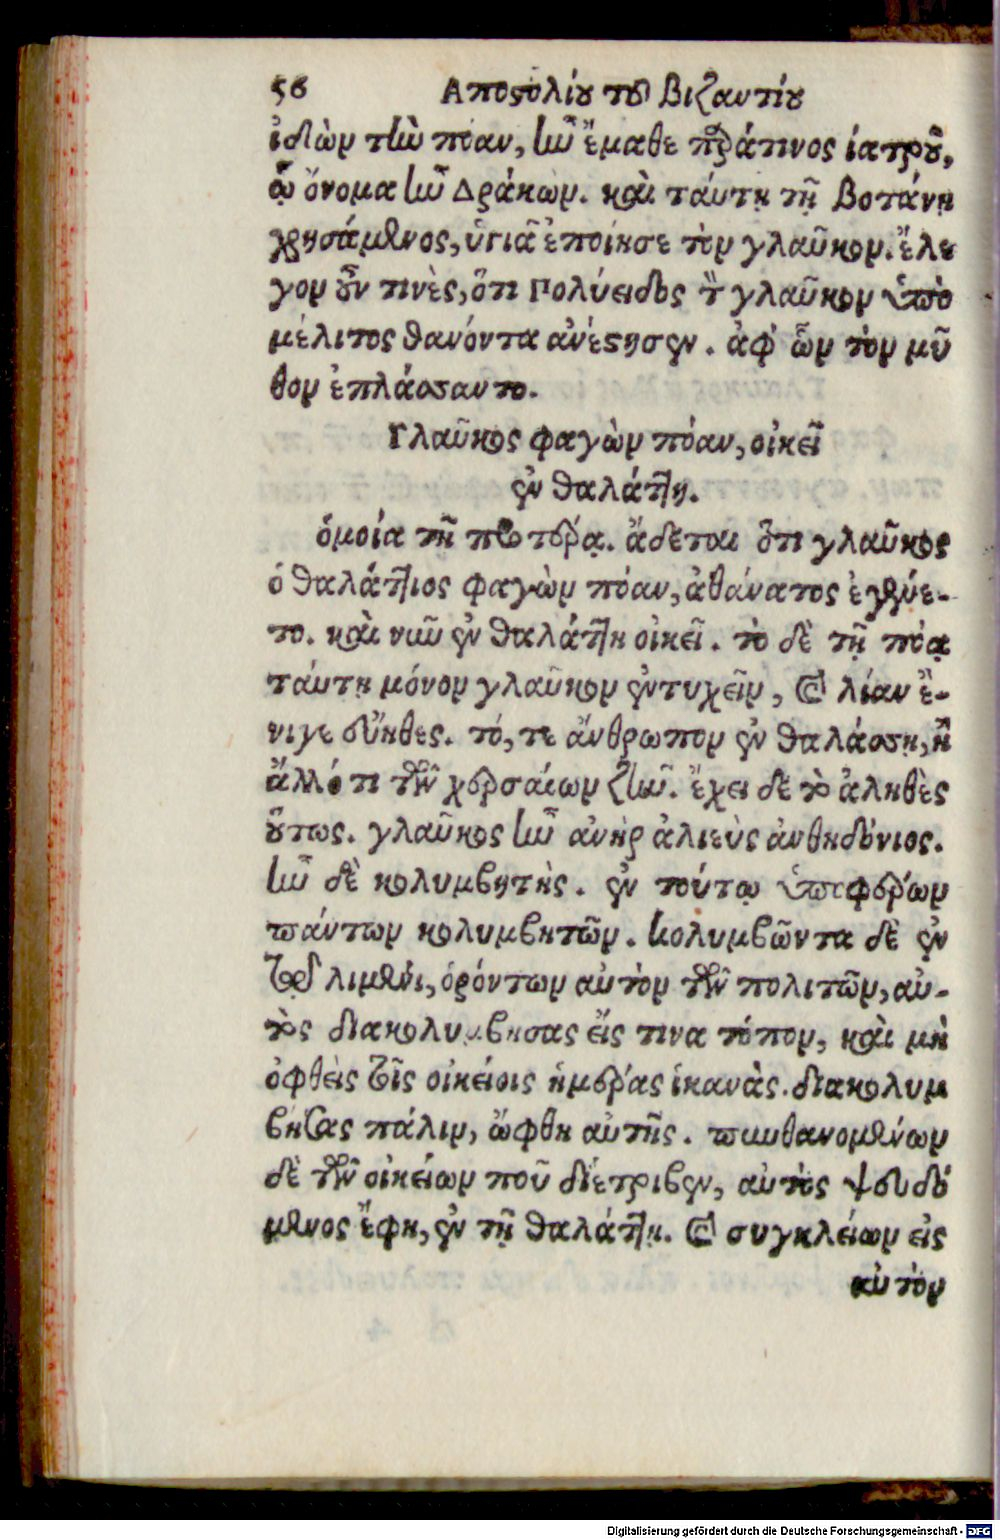 56 Ἀποστολίου τοῦ βιζαντίου
ἰδὼν τὴν πόαν, ἣν ἔμαθε πρᾶτινος ἰατροῦ,
ᾧ ὄνομα ἦν Δράκων. καὶ ταύτη τῇ βοτάνη
χρησάμενος, ὑγιᾶ ἐποίησε τὸν γλαῦκον. ἔλε
γον οὖν τινὲς, ὅτι Πολύειδος τὸν γλαῦκον ὑπὸ
μέλιτος θανόντα ἀνέστησεν. ἀφ' ὧν τὸν μῦ
θον ἐπλάσσαντο.
Γλαῦκος φαγὼν πόαν, οἰκεῖ
ἐν θαλάττη.
ὁμοία τῇ προτέρᾳ. ἄδεται ὅτι γλαῦκος
ὁ θαλάττιος φαγὼν πόαν, ἀθάνατος ἐγένε-
το. καὶ νῦν ἐν θαλάττη οἰκεῖ. τὸ δὲ τῇ πόᾳ
ταύτῃ μόνον γλαῦκον ἐντυχεῖν, καὶ λίαν ἔ-
νιγε σύηθες. τό, τε ἄνθρωπον ἐν θαλάσσῃ, ἢ
ἄλλό τι τῶν χερσαίων ζῆν. ἔχει δὲ τὸ ἀληθὲς
οὕτως. γλαῦκος ἦν ἀνὴρ ἁλιεὺς ἀνθηδόνιος.
ἦν δὲ κολυμβητὴς. ἐν τούτῳ ὑπερφέρων
πάντων κολυμβητῶν. κολυμβῶντα δὲ ἐν
τῷ λιμένι, ὁρόντων αὐτὸν τῶν πολιτῶν, αὐ-
τὸς διακολυμβησας εἴς τινα τόπον, καὶ μὴ
ὀφθεὶς τοῖς οἰκείοις ἡμέρας ἱκανὰς. διακολυμ
βήσας πάλιν, ὤφθη αὐτῆς. πυνθανομένων
δὲ τῶν οἰκείων ποῦ διέτριβεν, αὐτὸς ψευδό
μενος ἔφη, ἐν τῇ θαλάττη. καὶ συγκλείων εἰς
αὐτὸν
Digitalisierung gefördert durch die Deutsche Forschungsgemeinschaft - DFG